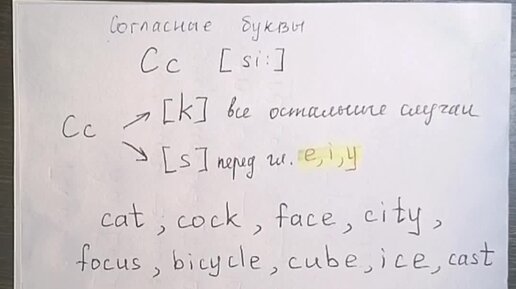 Согласные буквы
Cc [si:]
Cc → [k] все остальные случаи
→ [s] перед гл. e, i, y
cat, cock, face, city,
focus, bicycle, cube, ice, cast